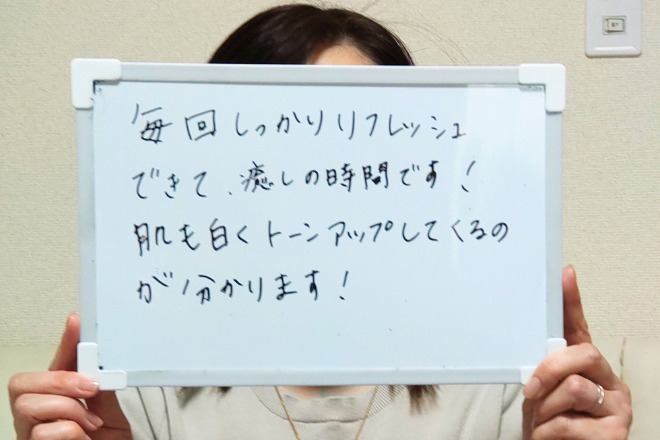 毎回しっかりリフレッシュ
できて、癒しの時間です!
肌も白くトーンアップしてくるの
が分かります!